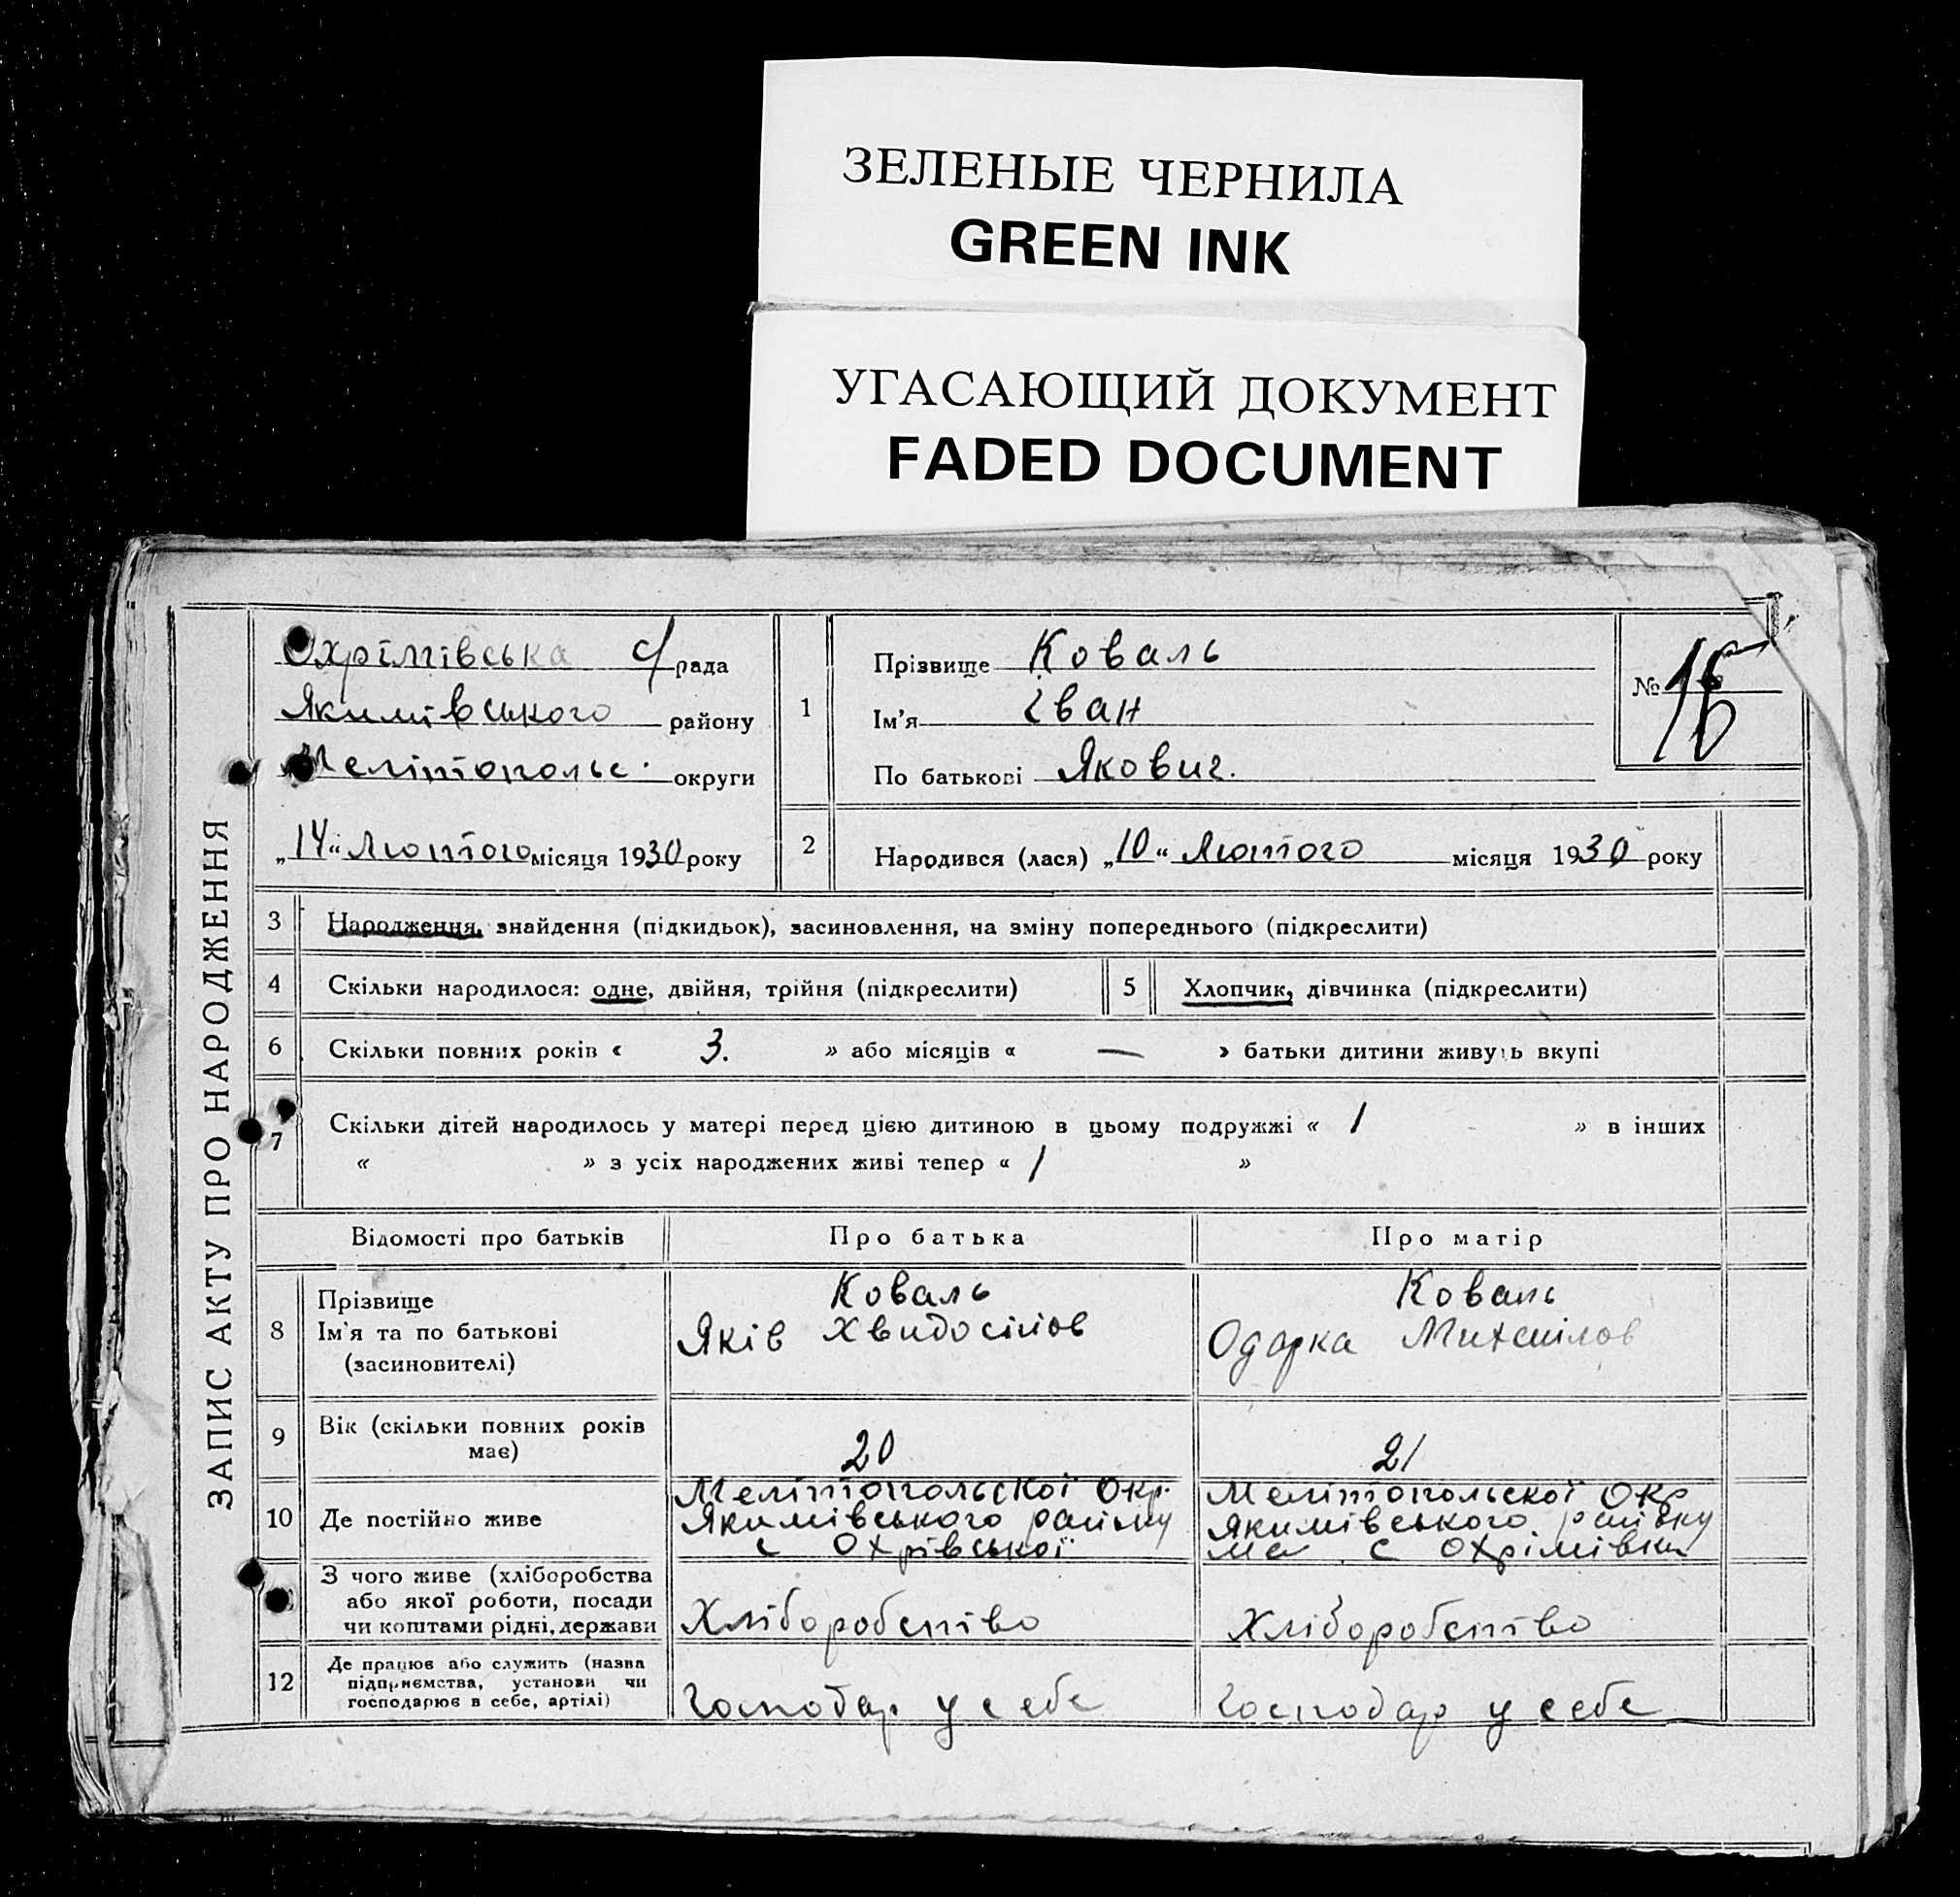 ЗЕЛЕНЫЕ ЧЕРНИЛА
GREEN INK
УГАСАЮЩИЙ ДОКУМЕНТ
FADED DOCUMENT
ЗАПИС АКТУ ПРО НАРОДЖЕННЯ
Охрімівська с/рада
Якимівського району
Мелітопольс. округи
„14“ Лютого місяця 1930 року
1
Прізвище Коваль
Ім'я Іван
По батькові Якович.
№ 16
2 Народився (лася) „10“ Лютого місяця 1930 року
3 Народження, знайдення (підкидьок), засиновлення, на зміну попереднього (підкреслити)
4 Скільки народилося: одне, двійня, трійня (підкреслити) 5 Хлопчик, дівчинка (підкреслити)
6 Скільки повних років « 3. » або місяців « — » батьки дитини живуть вкупі
7 Скільки дітей народилось у матері перед цією дитиною в цьому подружжі « 1 » в інших
« » з усіх народжених живі тепер « 1 »
Відомості про батьків Про батька Про матір
8
Прізвище
Ім'я та по батькові
(засиновителі)
Коваль
Яків
Коваль
Одарка Михайлов
9
Вік (скільки повних років
має)
20
21
10 Де постійно живе
Мелітопольскої Окр.
Якимівського району
с Охрівської
Мелітопольскої Окр
Якимівського району
с Охрімівки
З чого живе (хліборобства
або якої роботи, посади
чи коштами рідні, держави
Хліборобство
Хліборобство
12
Де працює або служить (назва
підприємства, установи чи
господарює в себе, артілі)
Господар у себе
Господар у себе